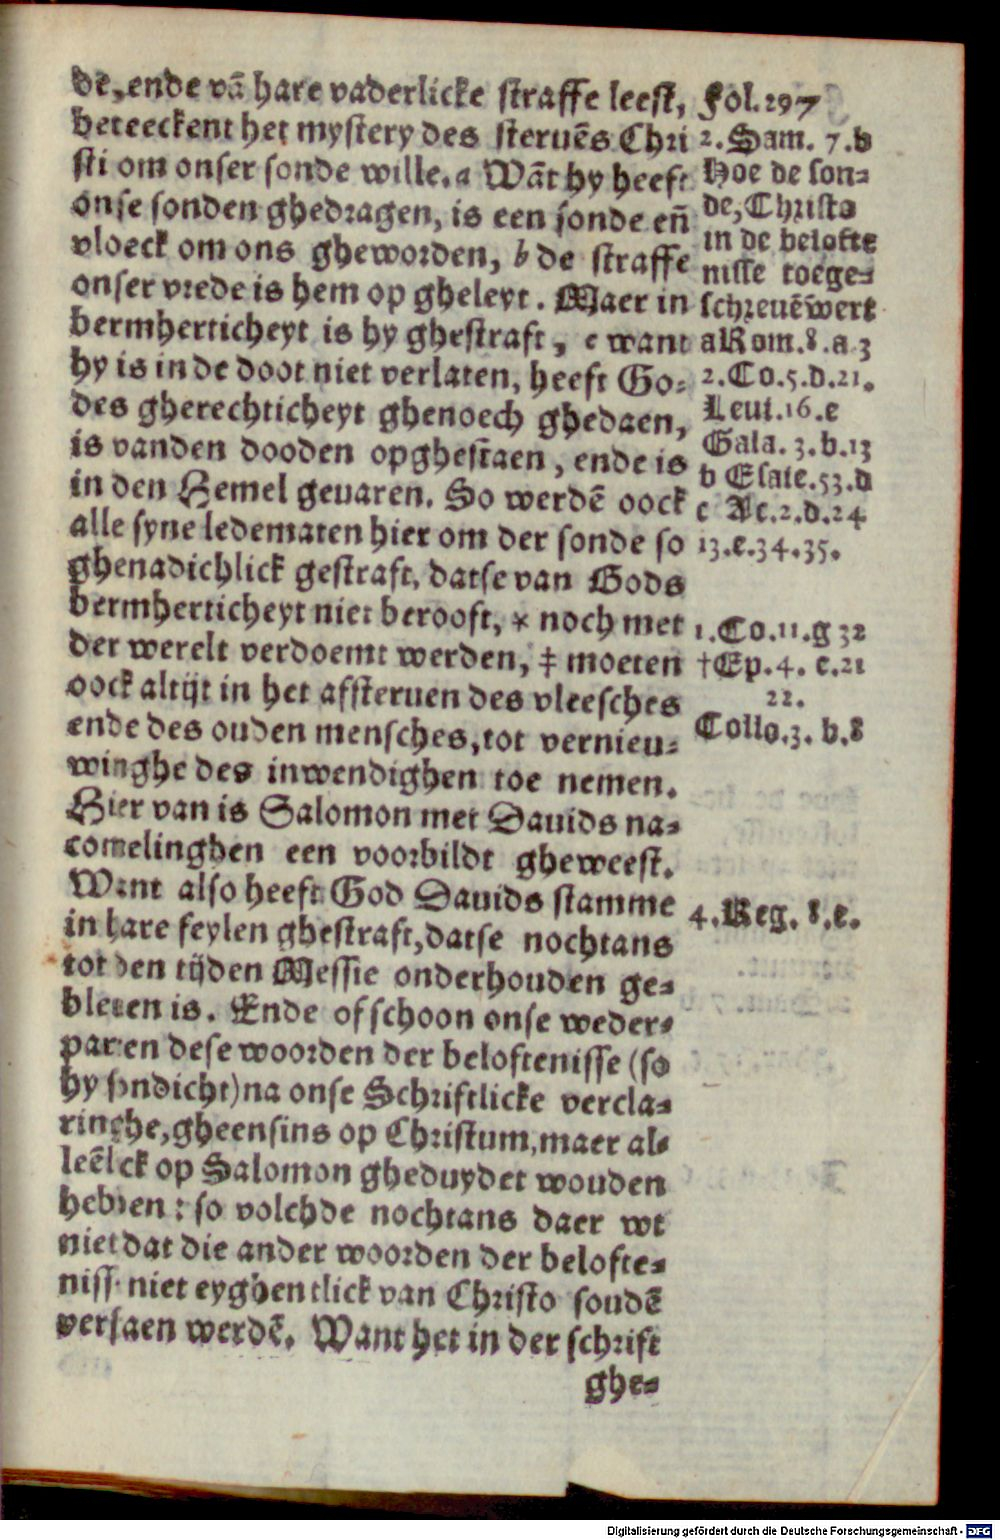 de, ende vā hare vaderlicke straffe leest,
beteeckent het mystery des steruēs Chri
sti om onser sonde wille. a Wāt hy heeft
onse sonden ghedragen, is een sonde eñ
vloeck om ons gheworden, b de straffe
onser vrede is hem op gheleyt. Maer in
bermherticheyt is hy ghestraft, c want
hy is in de doot niet verlaten, heeft Go-
des gherechticheyt ghenoech ghedaen,
is vanden dooden opghestaen, ende is
in den Hemel geuaren. So werdē oock
alle syne ledematen hier om der sonde so
ghenadichlick gestraft, datse van Gods
bermherticheyt niet berooft, * noch met
der werelt verdoemt werden, ‡ moeten
oock altijt in het afsteruen des vleesches
ende des ouden mensches, tot vernieu-
winghe des inwendighen toe nemen.
Hier van is Salomon met Dauids na-
comelinghen een voorbildt gheweest.
Want also heeft God Dauids stamme
in hare feylen ghestraft, datse nochtans
tot den tijden Messie onderhouden ge-
bleuen is. Ende of schoon onse weder-
partien dese woorden der beloftenisse (so
hy sondicht) na onse Schriftlicke vercla-
ringhe, gheensins op Christum, maer al-
leēlick op Salomon gheduydet wouden
hebben: so volchde nochtans daer wt
niet dat die ander woorden der belofte-
nisse niet eyghentlick van Christo soudē
verstaen werdē. Want het in der schrift
ghe-
Fol. 297
2. Sam. 7. b
Hoe de son-
de, Christo
in de belofte
nisse toege-
schreuē wert
a Rom. 8. a 3
2. Co. 5. d. 21.
Leui. 16. e
Gala. 3. b. 13
b Esaie. 53. d
c Ac. 2. d. 24
13. e. 34. 35.
1. Co. 11. g 32
† Ep. 4. c. 21
22.
Collo. 3. b. 8
4. Reg. 8. e.
Digitalisierung gefördert durch die Deutsche Forschungsgemeinschaft - DFG